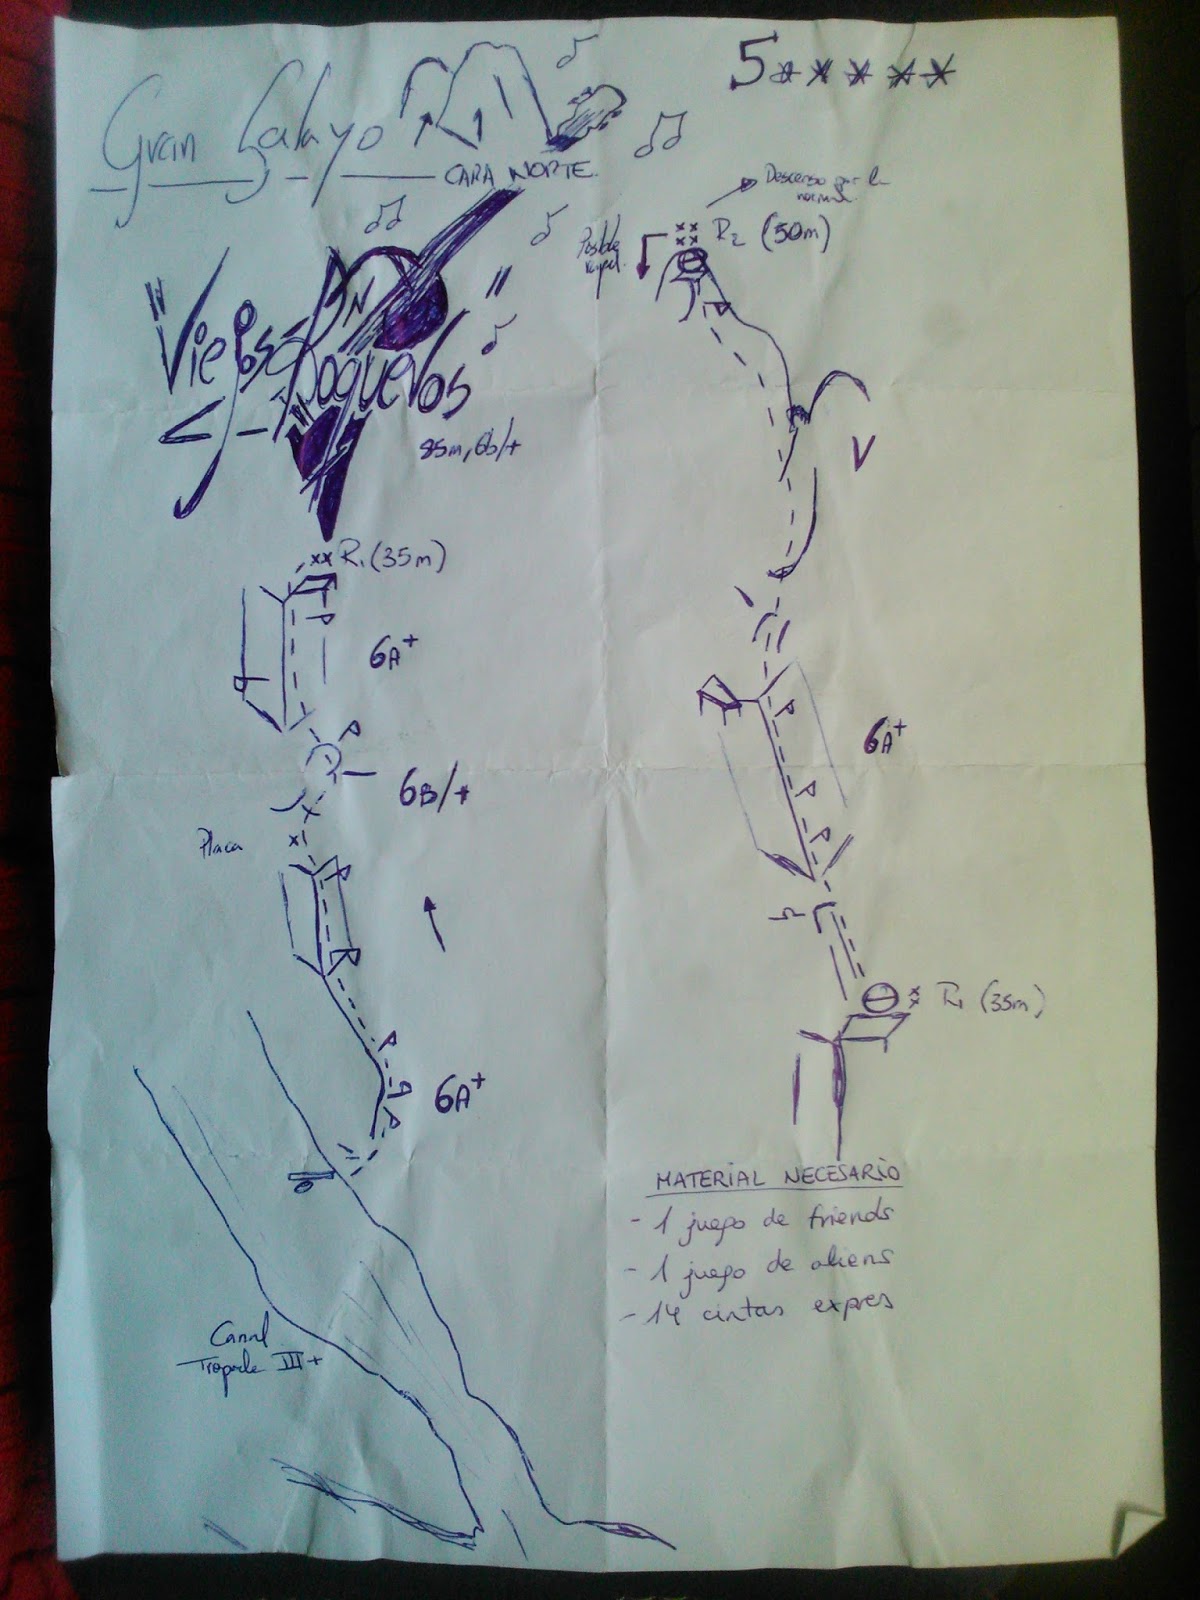 Gran Galayo
CARA NORTE.
5*****
"Viejos Roqueros"
85m, 6b/+
R1 (35m)
P
6A+
P
6B/+
Placa
P
P
6A+
P
Canal
Trepada III+
Descenso por la
normal
Posible
rapel.
R2 (50m)
V
P
6A+
P
P
R1 (35m)
MATERIAL NECESARIO
- 1 juego de friends
- 1 juego de aliens
- 14 cintas expres